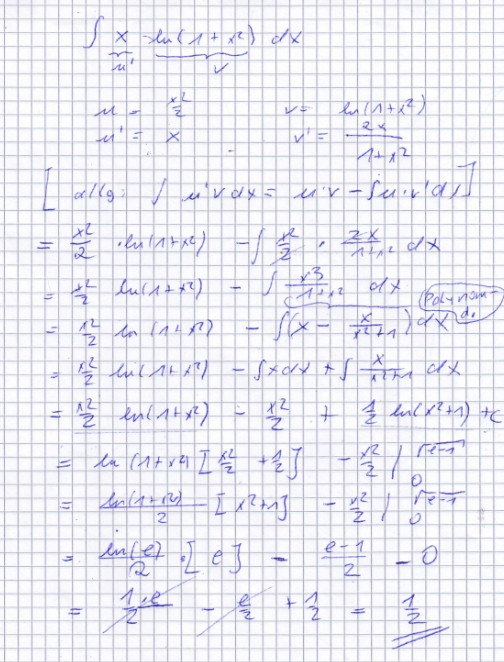 ∫ x · ln(1+x²) dx
u' v
u = x²/2 v = ln(1+x²)
u' = x v' = 2x/(1+x²)
[allg: ∫ u'v dx = u·v − ∫u·v'dx]
= x²/2 · ln(1+x²) − ∫ x²/2 · 2x/(1+x²) dx
= x²/2 ln(1+x²) − ∫ x³/(1+x²) dx
= x²/2 ln(1+x²) − ∫(x − x/(x²+1)) dx Polynom-d.
= x²/2 ln(1+x²) − ∫x dx + ∫ x/(x²+1) dx
= x²/2 ln(1+x²) − x²/2 + 1/2 ln(x²+1) + c
= ln(1+x²) [x²/2 + 1/2] − x²/2 |₀^√(e−1)
= ln(1+x²)/2 [x²+1] − x²/2 |₀^√(e−1)
= ln(e)/2 · [e] − (e−1)/2 − 0
= 1·e/2 − e/2 + 1/2 = 1/2